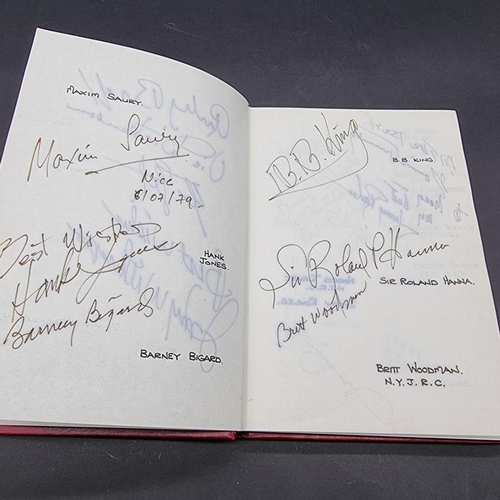 MAXIM SAURY.
Maxim Saury
Nice
6/07/79.
Best Wishes
Hank Jones
HANK
JONES.
Barney Bigard
BARNEY BIGARD.
B.B. King
B.B. KING.
Sir Roland P Hanna
SIR ROLAND HANNA.
Britt Woodman
BRITT WOODMAN.
N.Y.J.R.C.